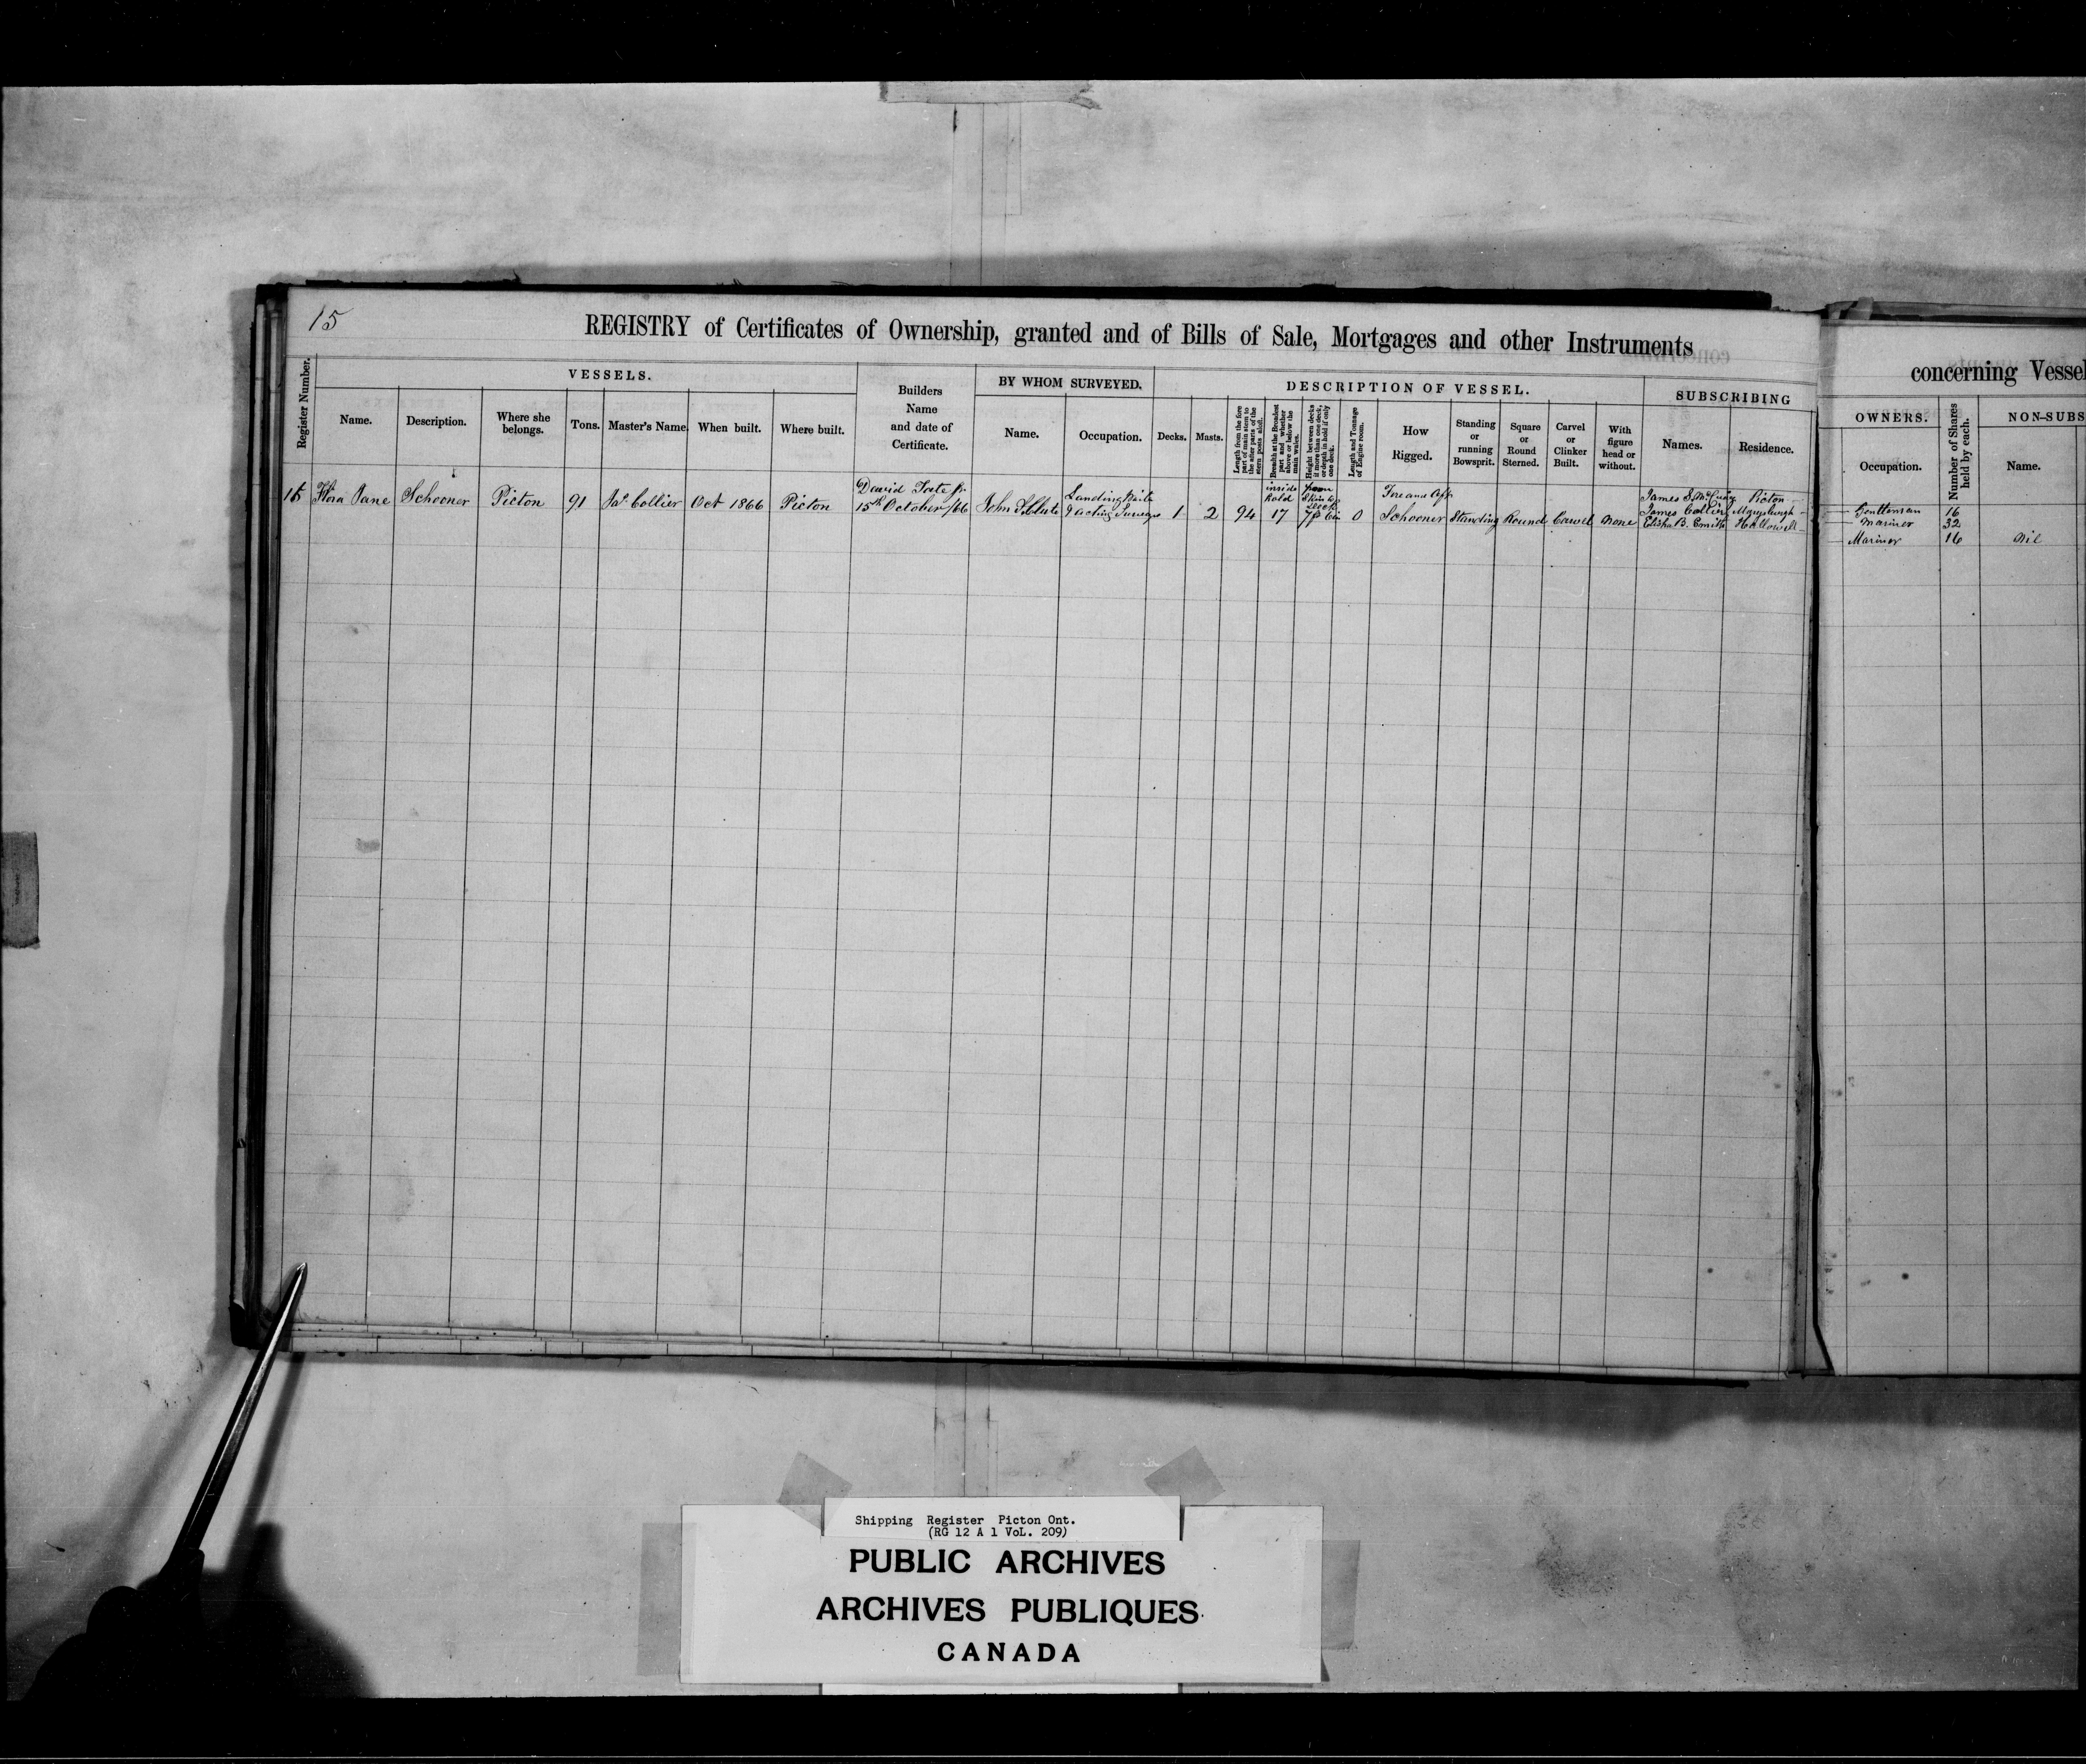 15
REGISTRY of Certificates of Ownership, granted and of Bills of Sale, Mortgages and other Instruments
Register Number.
VESSELS.
Name.
Description.
Where she belongs.
Tons.
Master's Name.
When built.
Where built.
Builders Name and date of Certificate.
BY WHOM SURVEYED.
Name.
Occupation.
DESCRIPTION OF VESSEL.
Decks.
Masts.
Length from the fore part of main stem to the after parts of the stern posts aloft.
Breadth at the Broadest part and whether above or below the main wales.
Height between decks if more than one deck, or depth in hold if only one deck.
Length and Tonnage of Engine room.
How Rigged.
Standing or running Bowsprit.
Square or Round Sterned.
Carvel or Clinker Built.
With figure head or without.
SUBSCRIBING
Names.
Residence.
15 Flora Jane Schooner Picton 91 Jas. Collier Oct 1866 Picton
David Tait
15th October /66
John
Landing Waiter
& acting Surveyor
1 2 94
inside hold
17
from Skin to deck
7f 6in
0
Fore and Aft
Schooner Standing Round Carvel none
James S. McCuaig Picton
James Collier Marysburgh
Elisha B. Smith Hallowell
concerning Vessel
OWNERS.
Occupation.
Number of Shares held by each.
NON-SUBS
Name.
Gentleman 16
Mariner 32
Mariner 16 Nil
Shipping Register Picton Ont.
(RG 12 A 1 VoL. 209)
PUBLIC ARCHIVES
ARCHIVES PUBLIQUES
CANADA